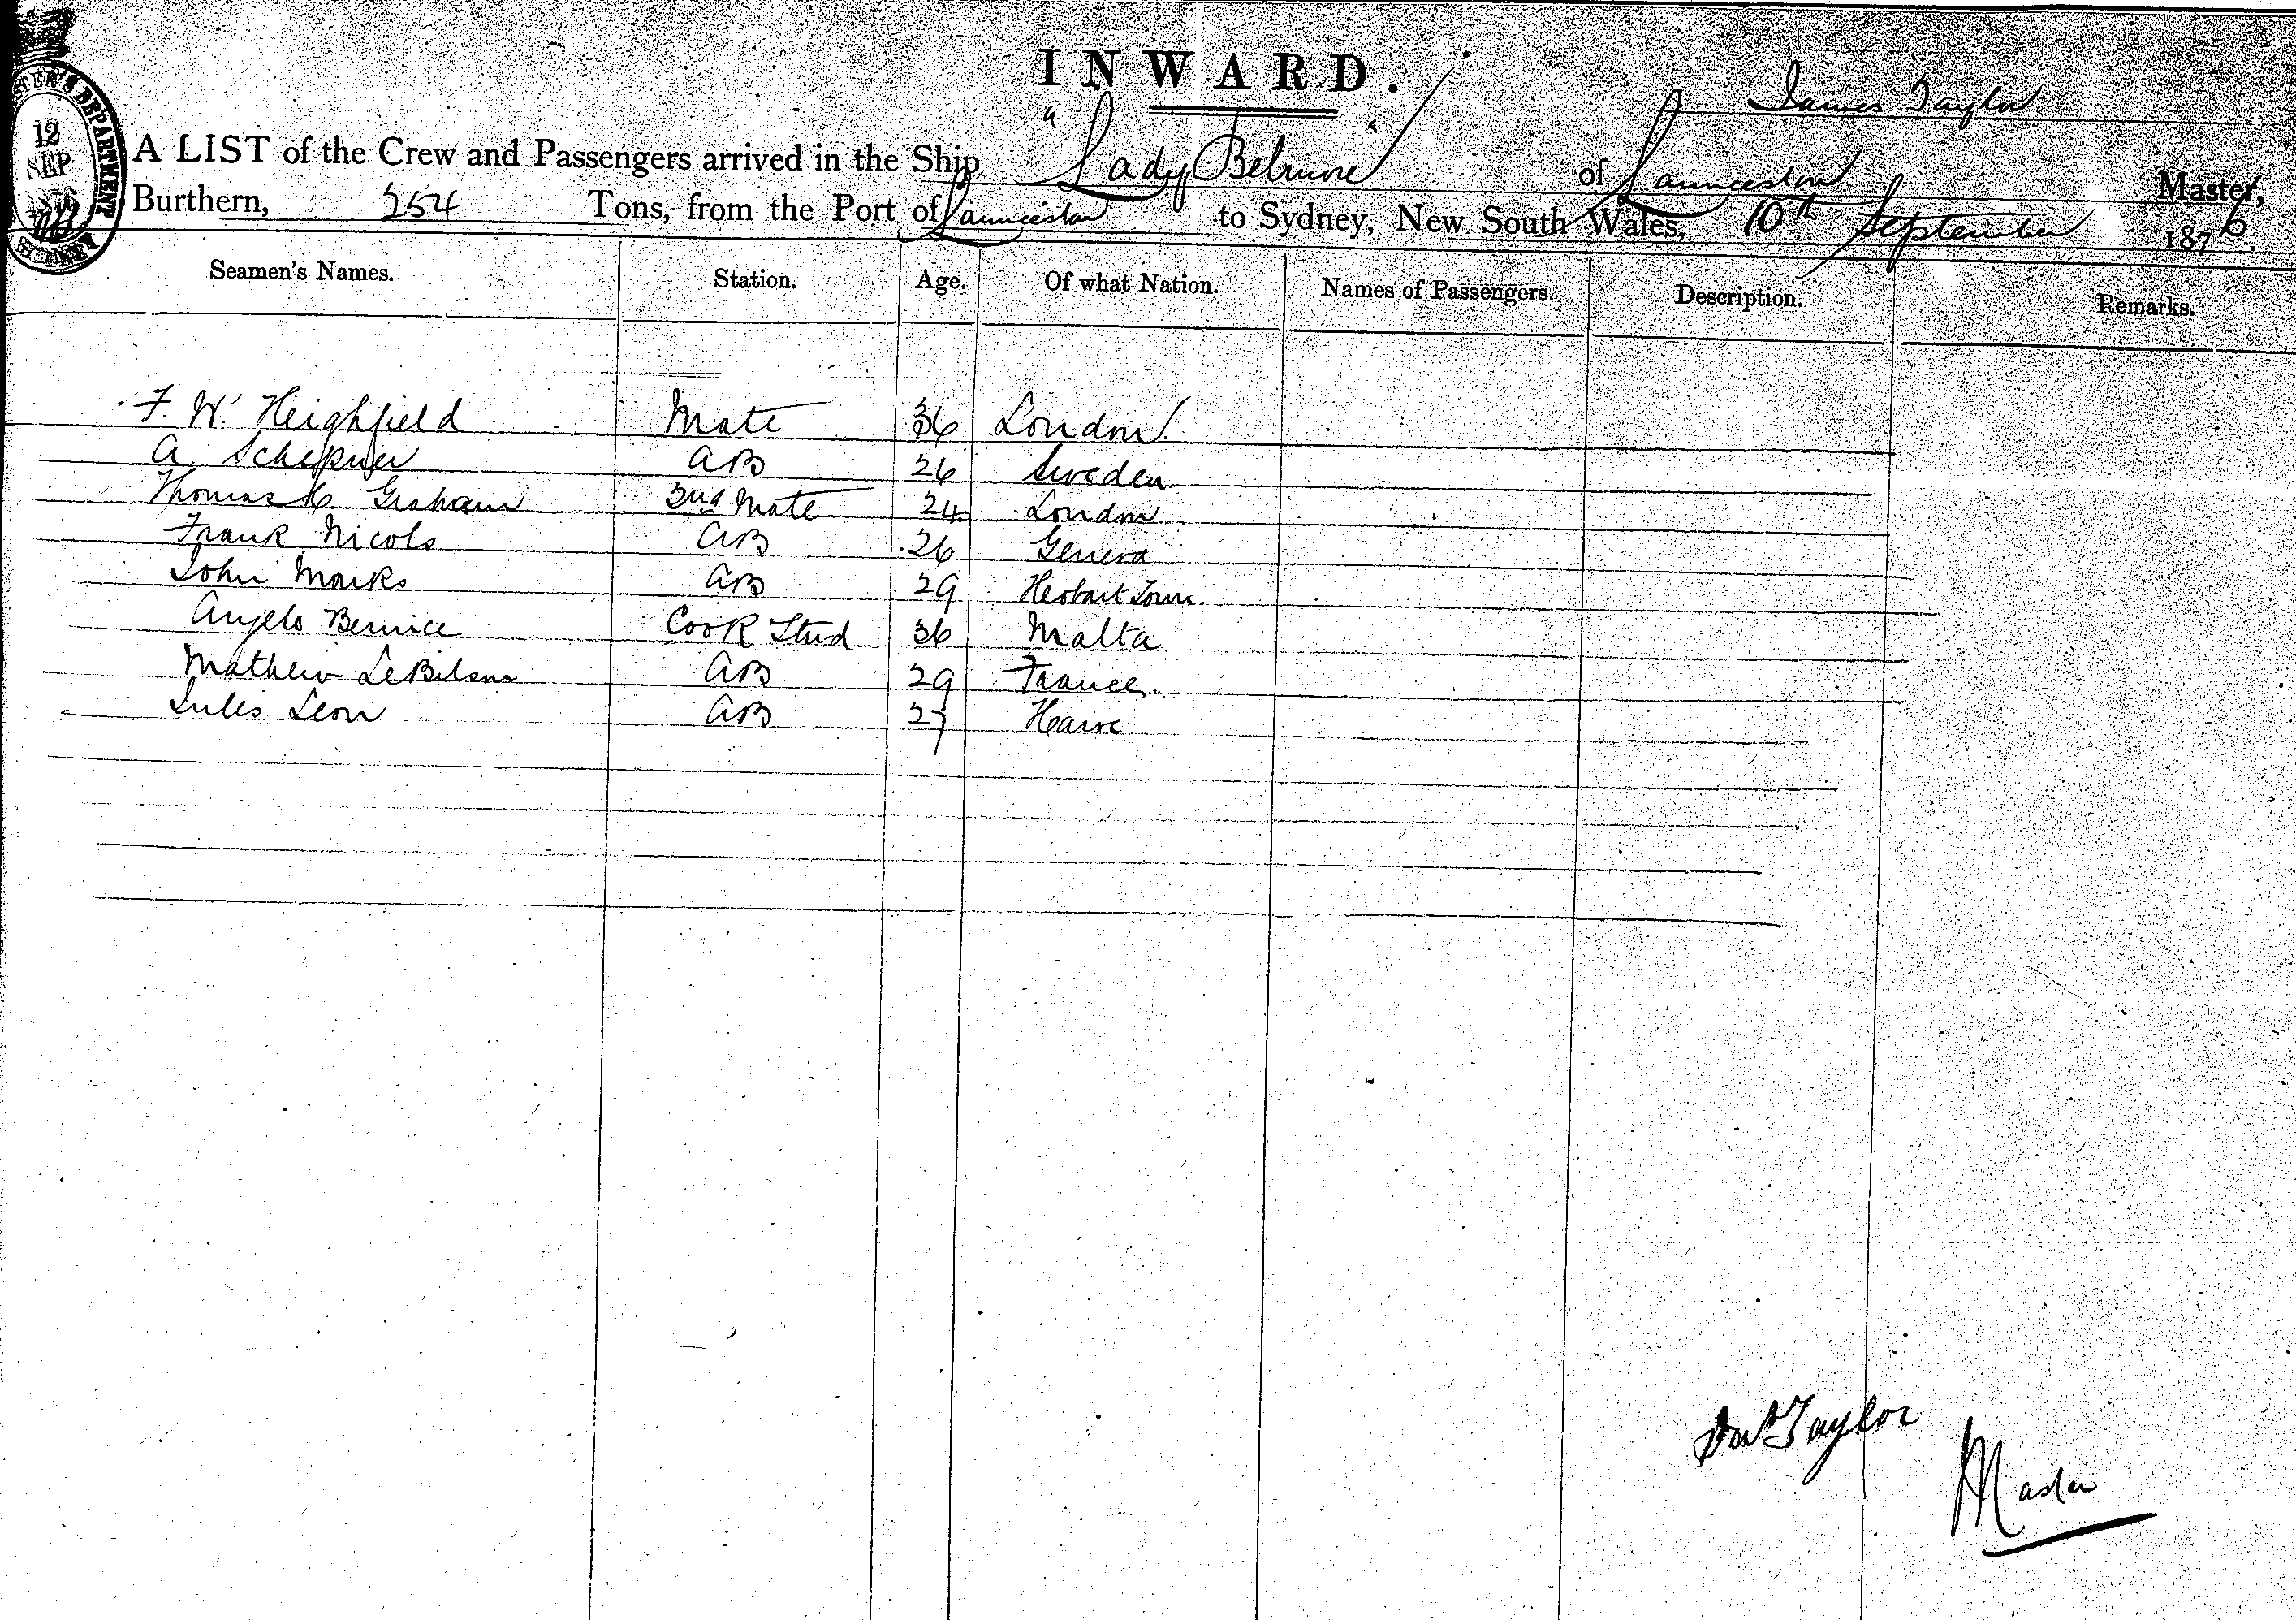 INWARD.
James Taylor
A LIST of the Crew and Passengers arrived in the Ship "Lady Belmore" of Launceston Master,
Burthern, 254 Tons, from the Port of Launceston to Sydney, New South Wales, 10th September 1876.
12
SEP
DEPARTMENT
SYDNEY
Seamen's Names. Station. Age. Of what Nation. Names of Passengers. Description. Remarks.
F. W. Heighfield Mate 36 London
A AB 26 Sweden
Thomas Graham 2nd Mate 24 London
Frank Nicols AB 26 Geneva
John Marks AB 29 Hobart Town
Angelo Bernice Cook Stud 36 Malta
Mathew AB 29 France
Jules Leon AB 27 Havre
Taylor
Master